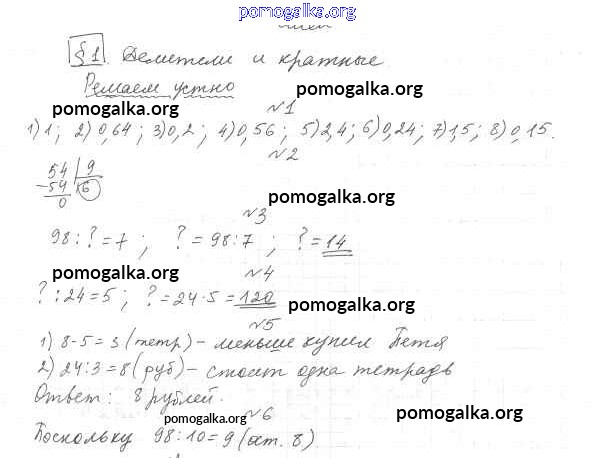 pomogalka.org
§1. Делители и кратные
Решаем устно
pomogalka.org
pomogalka.org
№1
1) 1; 2) 0,64; 3) 0,2; 4) 0,56; 5) 2,4; 6) 0,24; 7) 1,5; 8) 0,15.
№2
54 | 9
-54 | 6
0
pomogalka.org
№3
98 : ? = 7; ? = 98 : 7; ? = 14
pomogalka.org
№4
? : 24 = 5; ? = 24 · 5 = 120
pomogalka.org
№5
1) 8-5=3 (тетр) - меньше купил Петя
2) 24:3=8 (руб) - стоит одна тетрадь
Ответ: 8 рублей.
pomogalka.org
№6
pomogalka.org
Поскольку 98:10=9 (ост. 8)